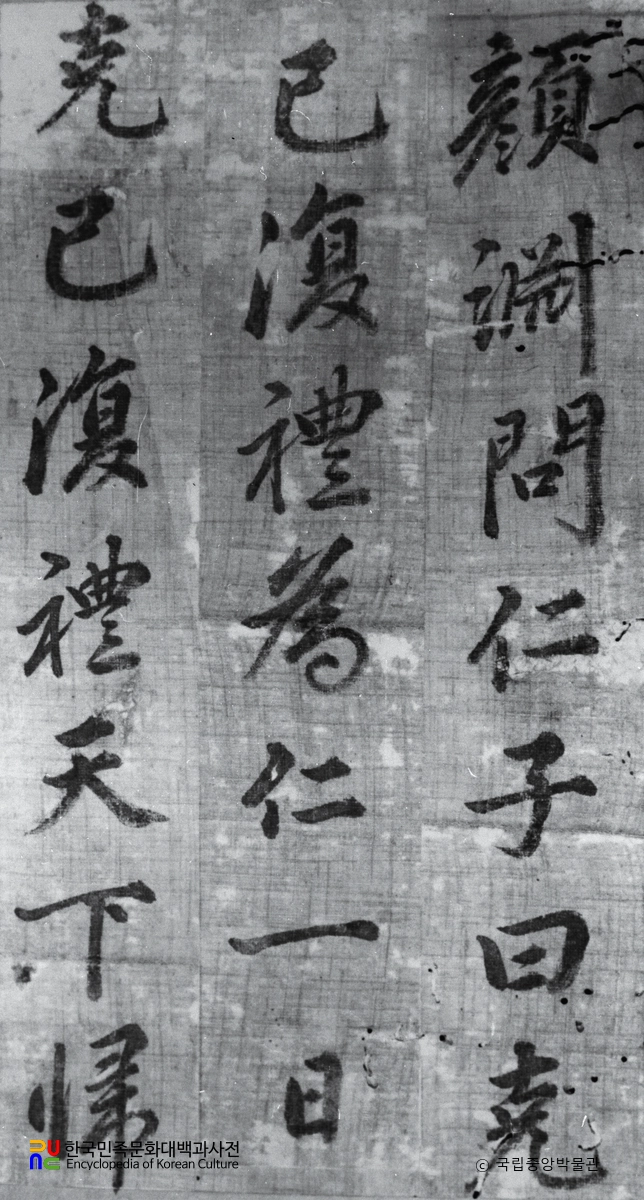 顔淵問仁子曰克
己復禮為仁一日
克己復禮天下帰
한국민족문화대백과사전
Encyclopedia of Korean Culture
ⓒ 국립중앙박물관